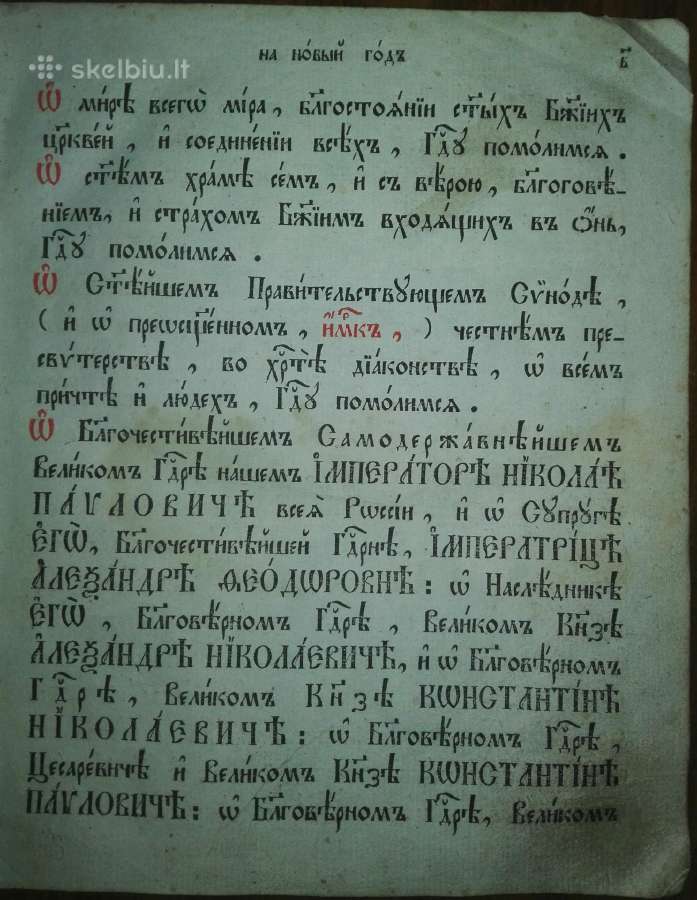 skelbiu.lt
на но́вый го́дъ
в҃
Ѡ҆ ми́рѣ всегѡ̀ мі́ра, бл҃госто́ѧнїи ст҃ы́хъ Бж҃їихъ
цр҃кве́й, и҆ соедине́нїи всѣ́хъ, Гд҇ꙋ помо́лимсѧ.
Ѡ҆ ст҃ѣ́мъ хра́мѣ се́мъ, и҆ съ вѣ́рою, бл҃гоговѣ́-
нїемъ, и҆ стра́хомъ Бж҃їимъ входѧ́щихъ въ ѻ҆́нь,
Гд҇ꙋ помо́лимсѧ.
Ѡ҆ Ст҃ѣ́йшемъ Прави́тельствꙋющемъ Сѷно́дѣ,
( и҆ ѡ҆ преѡсщ҃е́нномъ, и҆́мк҇ъ, ) честнѣ́мъ пре-
сви́терствѣ, во хрт҇ѣ̀ дїа́конствѣ, ѡ҆ все́мъ
при́чтѣ и҆ лю́дехъ, Гд҇ꙋ помо́лимсѧ.
Ѡ҆ Бл҃гочести́вѣйшемъ Самодержа́внѣйшемъ
Вели́комъ Гдⷭ҇рѣ на́шемъ І҆МПЕРА́ТОРѢ НІКОЛА́Ѣ
ПА́ѴЛОВИЧѢ всеѧ̀ Рѡссі́и, и҆ ѡ҆ Сꙋпрꙋ́гѣ
Е҆ГѠ̀, Бл҃гочести́вѣйшей Гдⷭ҇рнѣ, І҆МПЕРАТРІ́ЦѢ
А҆ЛЕѮА́НДРѢ ѲЕѠ́ДѠРОВНѢ: ѡ҆ Наслѣ́дникѣ
Е҆ГѠ̀, Бл҃говѣ́рномъ Гдⷭ҇рѣ, Вели́комъ Кнѕ҃ѣ
А҆ЛЕѮА́НДРѢ НІКОЛА́ЕВИЧѢ, и҆ ѡ҆ Бл҃говѣ́рномъ
Гдⷭ҇рѣ, Вели́комъ Кнѕ҃ѣ КѠНСТАНТІ́НѢ
НІКОЛА́ЕВИЧѢ: ѡ҆ Бл҃говѣ́рномъ Гдⷭ҇рѣ,
Цесаре́вичѣ и҆ Вели́комъ Кнѕ҃ѣ КѠНСТАНТІ́НѢ
ПА́ѴЛОВИЧѢ: ѡ҆ Бл҃говѣ́рномъ Гдⷭ҇рѣ, Вели́комъ